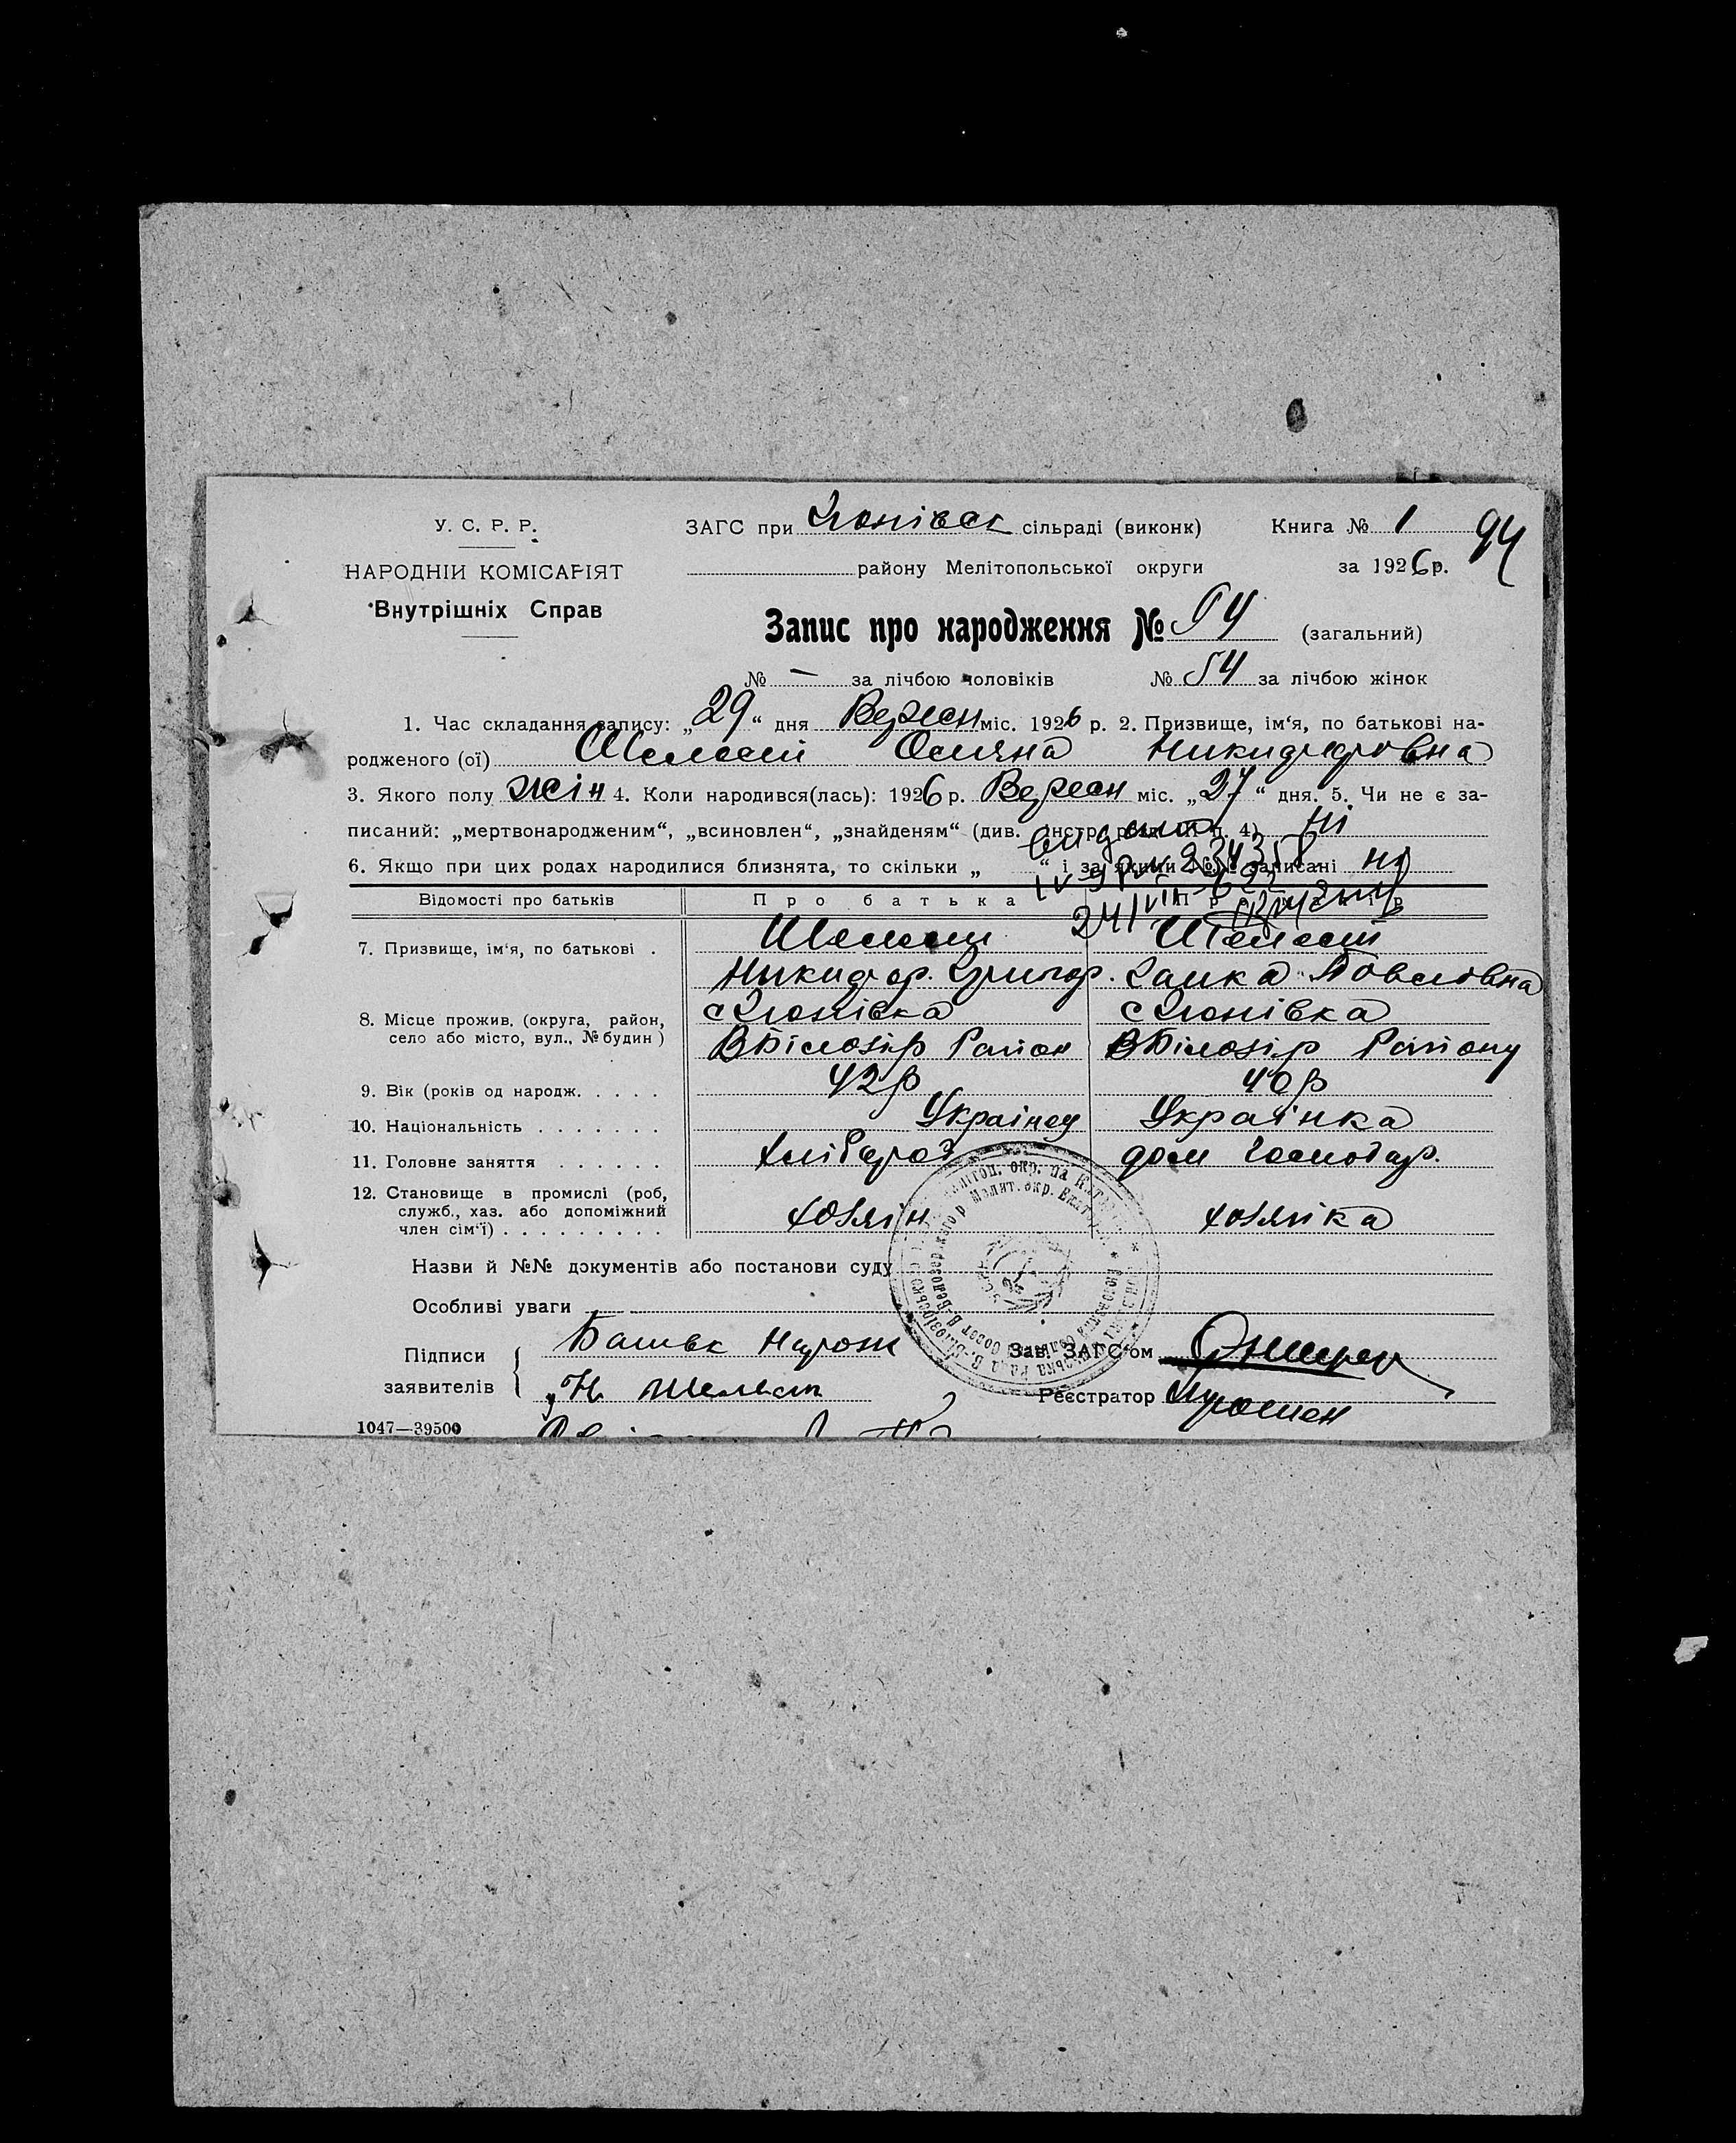 У. С. Р. Р.
НАРОДНІЙ КОМІСАРІЯТ
Внутрішніх Справ
ЗАГС при сільраді (виконк)
району Мелітопольської округи
Книга № 1 94
за 1926 р.
Запис про народження № 94 (загальний)
№ — за лічбою чоловіків № 54 за лічбою жінок
1. Час складання запису: „29“ дня Вересн міс. 1926 р. 2. Призвище, ім'я, по батькові на-
родженого (ої) Шелест Никифоровна
3. Якого полу жін 4. Коли народився(лась): 1926 р. Вересн міс. „27“ дня. 5. Чи не є за-
писаний: „мертвонародженим“, „всиновлен“, „знайденям“ (див. інстр. розд. п. 4) ні
6. Якщо при цих родах народилися близнята, то скільки „ “ і за якими №№ записані ні
Відомості про батьків Про батька
7. Призвище, ім'я, по батькові . Шелест Шелест
Никифор. Григор. Павловна
8. Місце прожив. (округа, район,
село або місто, вул., № будин )
ВБілозір Район ВБілозір Району
9. Вік (років од народж. . . . . 42р 40р
10. Національність . . . . . . . Українец Українка
11. Головне заняття . . . . . . Хлібороб дом Господар.
12. Становище в промислі (роб,
служб., хаз. або допоміжний
член сім'ї) . . . . . . . . . Хозяін Хозяіка
Назви й №№ документів або постанови суду
Особливі уваги
Підписи
заявителів
Н Шелест
Зав. ЗАГС'ом
Реєстратор
1047—39500